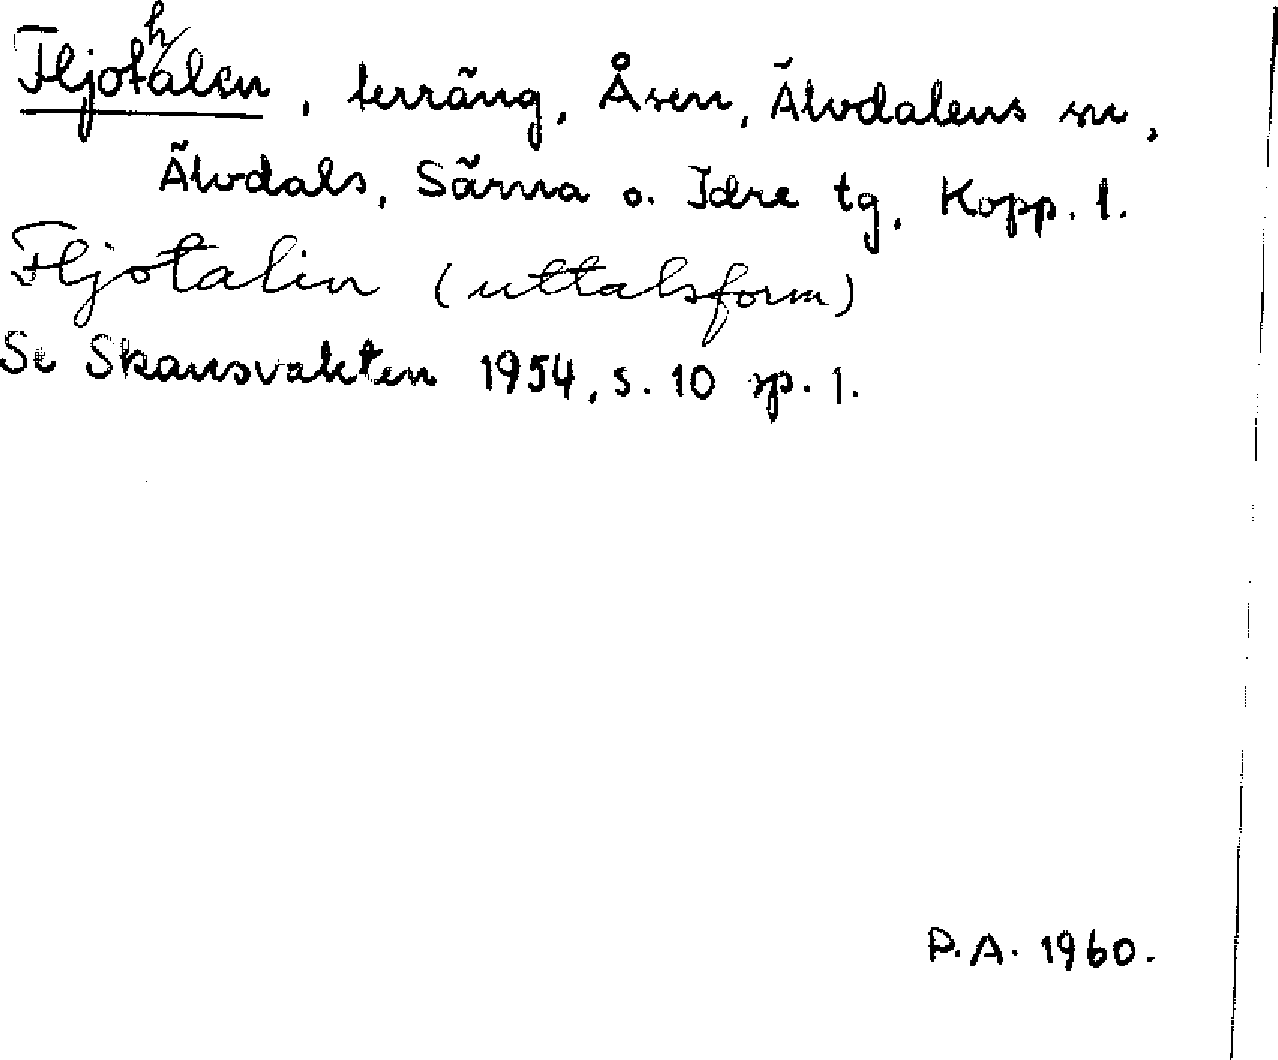 Fljothalen, terräng, Åsen, Älvdalens sn,
Älvdals, Särna o. Idre tg, Kopp. l.
Fljotalin (uttalsform)
Se Skansvakten 1954, s. 10 sp. 1.
P.A. 1960.